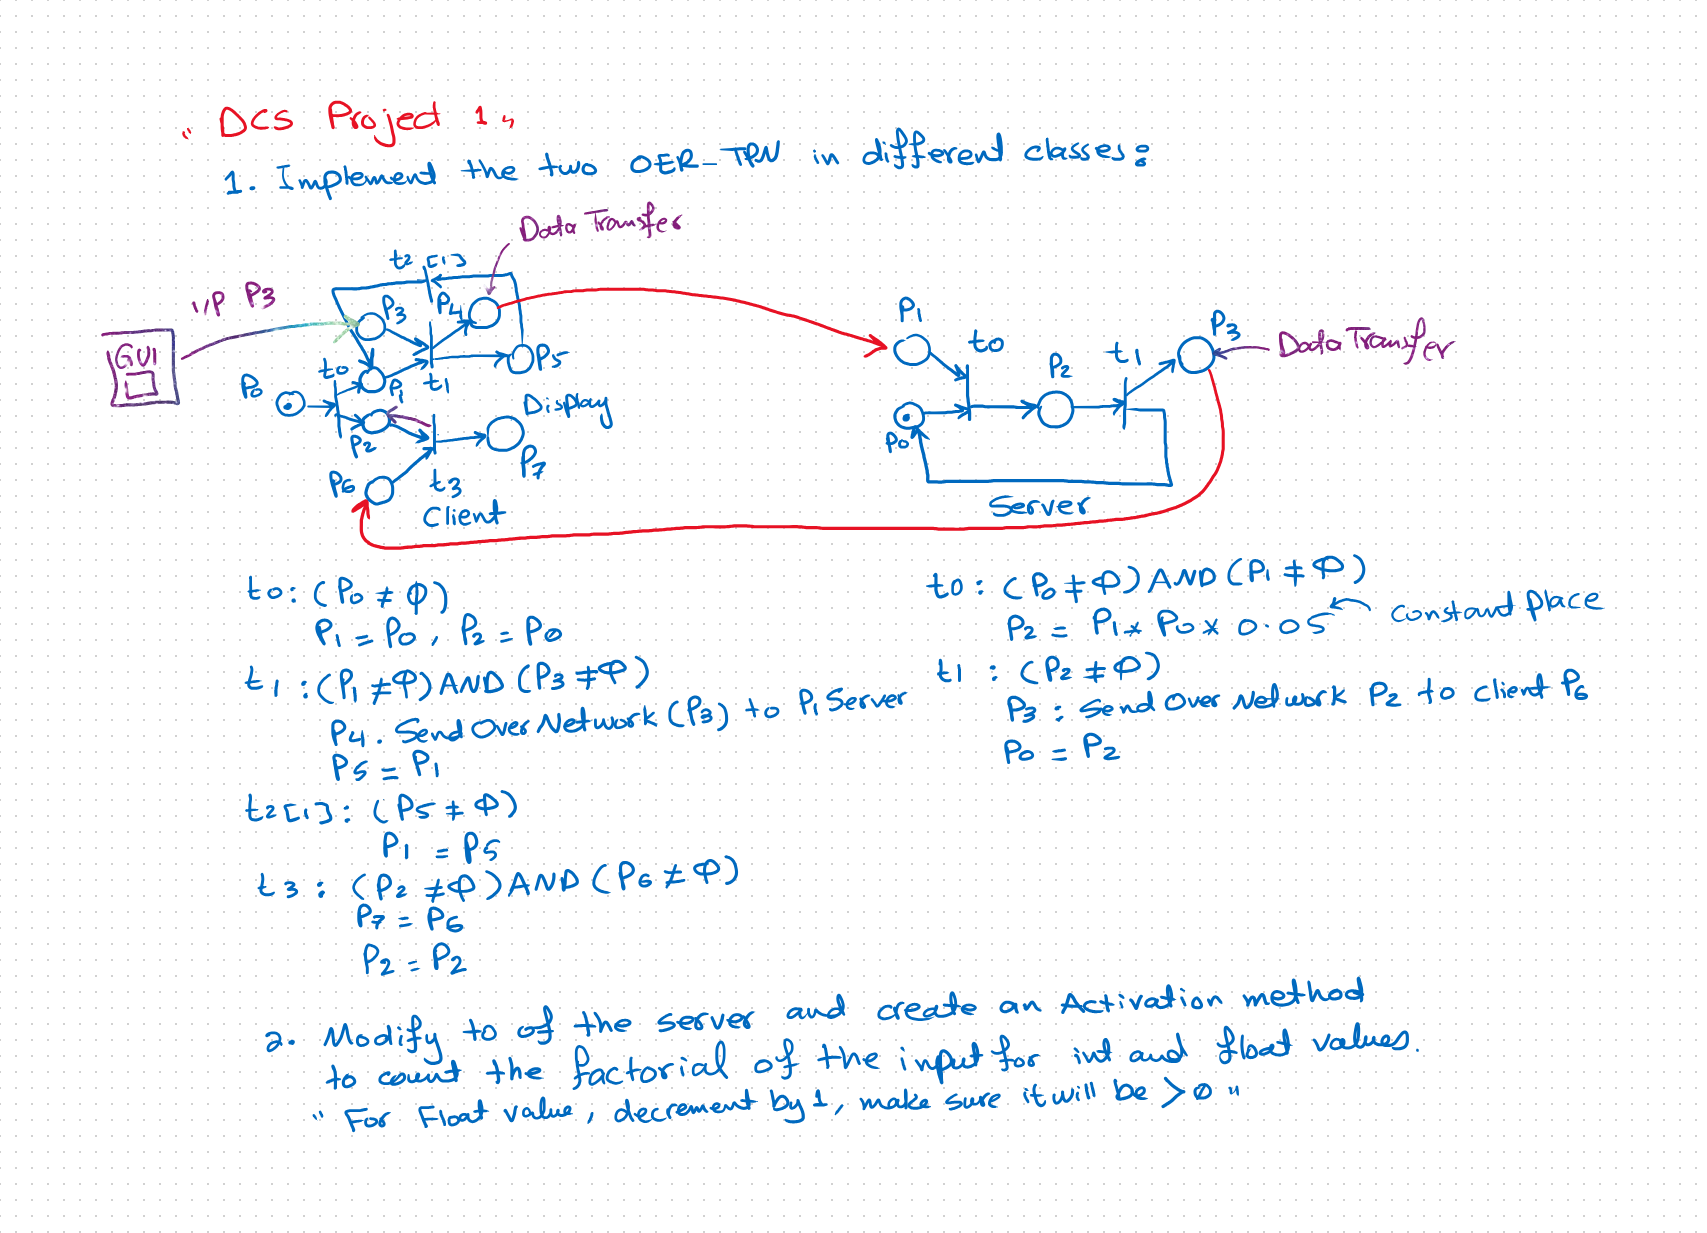 "DCS Project 1"
1. Implement the two OER-TPN in different classes:
Data Transfer
t2 [1]
I/P P3
P3
P4
P1
t0
P3
GUI
t0
P5
P2
t1
Data Transfer
P0
P1
t1
Display
P2
P0
P7
P6
t3
Client
Server
t0: (P0 ≠ Φ)
P1 = P0, P2 = P0
t1: (P1 ≠ Φ) AND (P3 ≠ Φ)
P4. Send Over Network (P3) to P1 Server
P5 = P1
t2[1]: (P5 ≠ Φ)
P1 = P5
t3: (P2 ≠ Φ) AND (P6 ≠ Φ)
P7 = P6
P2 = P2
t0: (P0 ≠ Φ) AND (P1 ≠ Φ)
P2 = P1 * P0 * 0.05 constant Place
t1: (P2 ≠ Φ)
P3: Send Over Network P2 to client P6
P0 = P2
2. Modify t0 of the server and create an Activation method
to count the factorial of the input for int and float values.
"For Float value, decrement by 1, make sure it will be > 0"